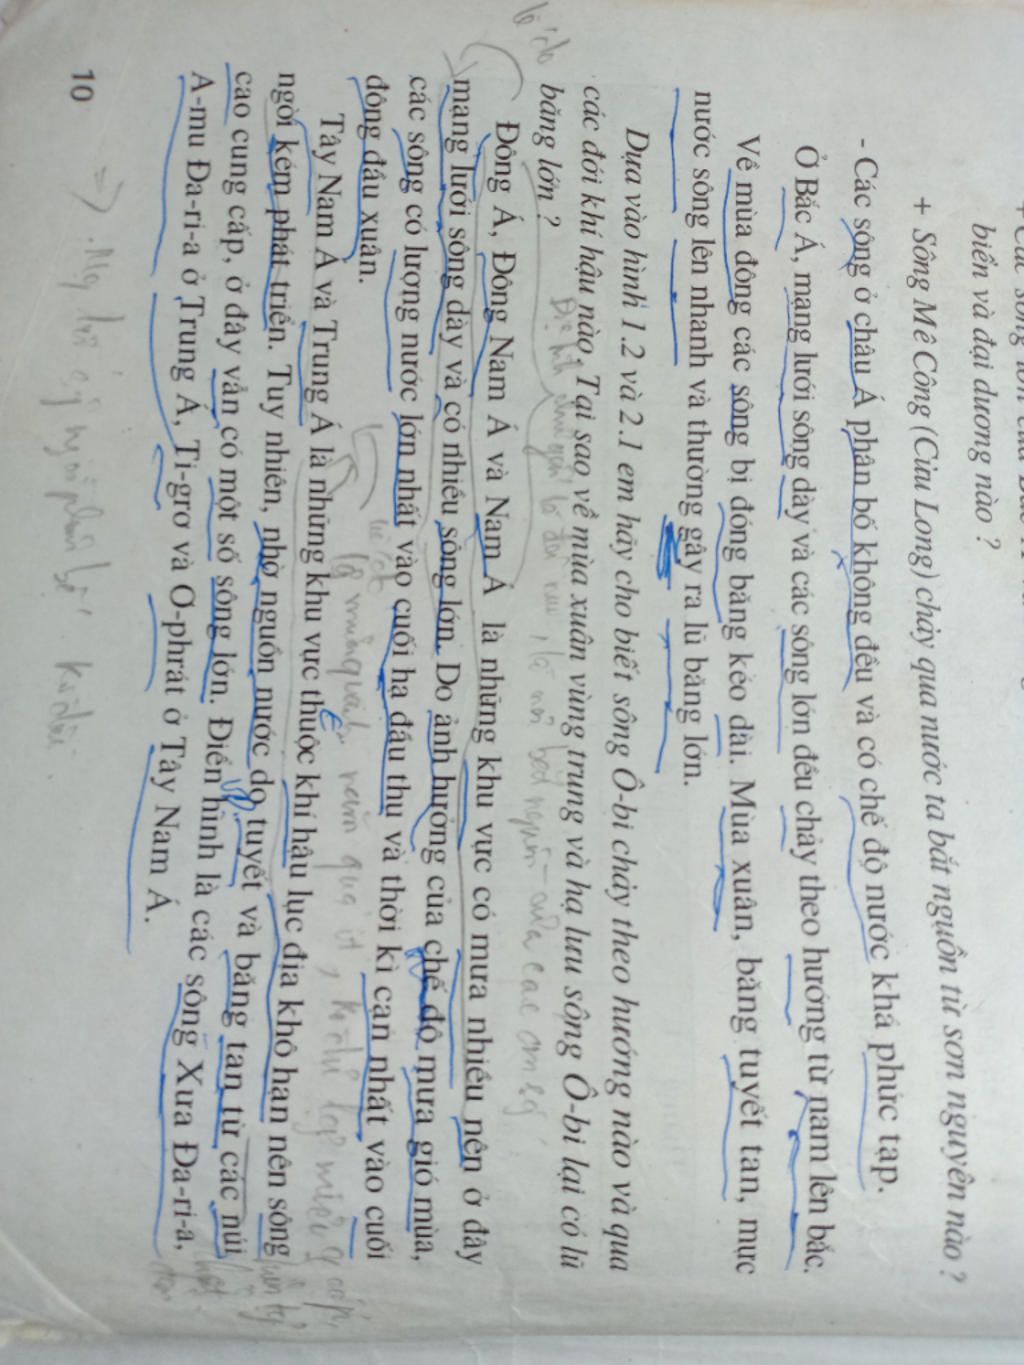 biển và đại dương nào ?
+ Sông Mê Công (Cửu Long) chảy qua nước ta bắt nguồn từ sơn nguyên nào ?
- Các sông ở châu Á phân bố không đều và có chế độ nước khá phức tạp.
Ở Bắc Á, mạng lưới sông dày và các sông lớn đều chảy theo hướng từ nam lên bắc.
Về mùa đông các sông bị đóng băng kéo dài. Mùa xuân, băng tuyết tan, mực
nước sông lên nhanh và thường gây ra lũ băng lớn.
Dựa vào hình 1.2 và 2.1 em hãy cho biết sông Ô-bi chảy theo hướng nào và qua
các đới khí hậu nào. Tại sao về mùa xuân vùng trung và hạ lưu sông Ô-bi lại có lũ
băng lớn ?
Đông Á, Đông Nam Á và Nam Á là những khu vực có mưa nhiều nên ở đây
mạng lưới sông dày và có nhiều sông lớn. Do ảnh hưởng của chế độ mưa gió mùa,
các sông có lượng nước lớn nhất vào cuối hạ đầu thu và thời kì cạn nhất vào cuối
đông đầu xuân.
Tây Nam Á và Trung Á là những khu vực thuộc khí hậu lục địa khô hạn nên sông
ngòi kém phát triển. Tuy nhiên, nhờ nguồn nước do tuyết và băng tan từ các núi
cao cung cấp, ở đây vẫn có một số sông lớn. Điển hình là các sông Xưa Đa-ri-a,
A-mu Đa-ri-a ở Trung Á, Ti-grơ và Ơ-phrát ở Tây Nam Á.
10